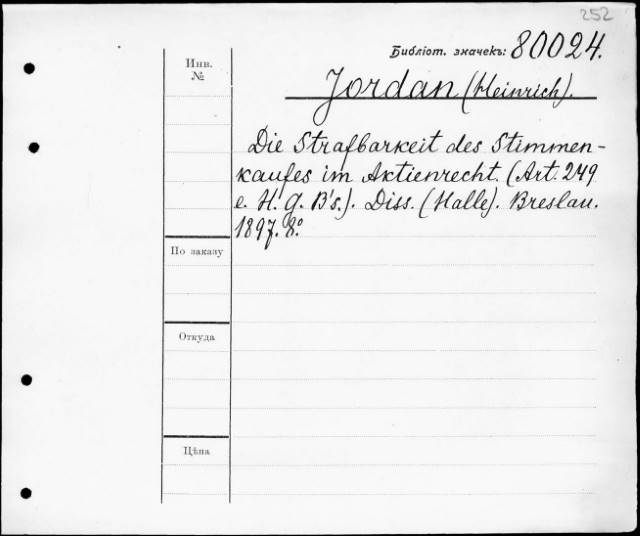 252
Библіот. значекъ: 80024.
Инв.
№
Jordan (Heinrich).
Die Strafbarkeit des Stimmen-
kaufes im Aktienrecht. (Art. 249
e. H. g. B's.). Diss. (Halle). Breslau.
1897. 8.º
По заказу
Откуда
Цѣна